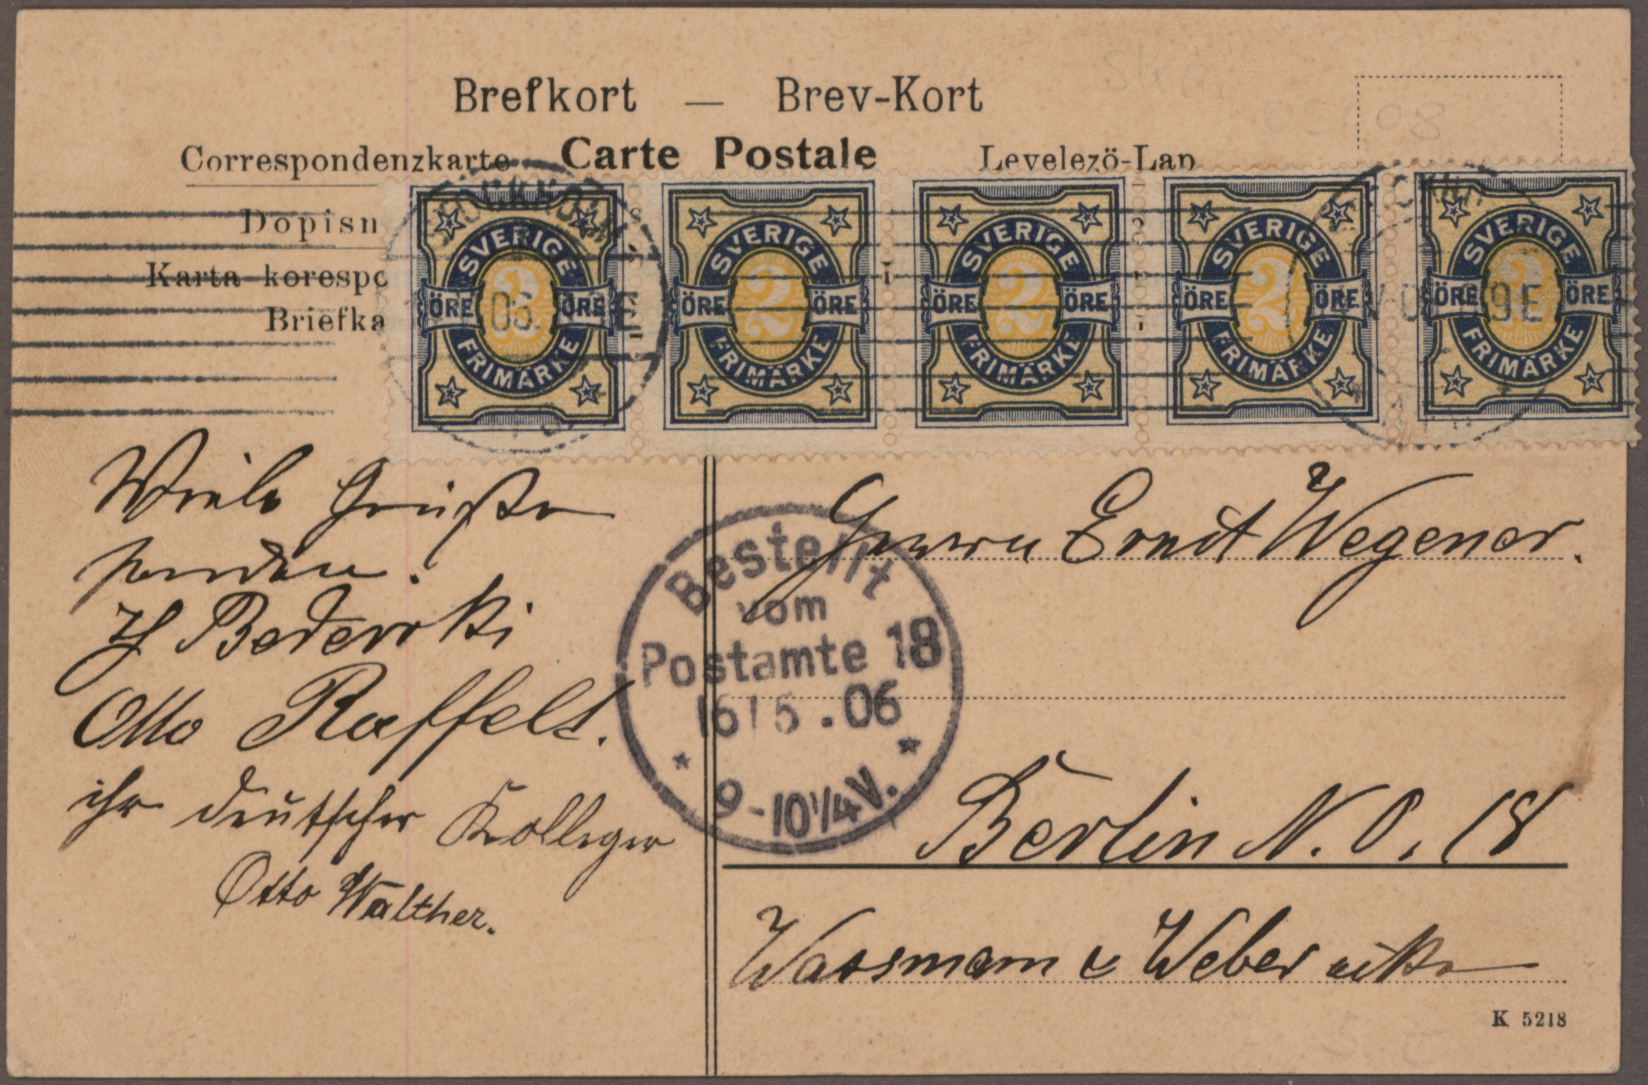 Brefkort — Brev-Kort
Correspondenzkarte Carte Postale Levelező-Lap
Dopisn
Karta korespo
Briefka
STOCKHOLM
06.
9 E
SVERIGE
2
ÖRE ÖRE
FRIMÄRKE
SVERIGE
2
ÖRE ÖRE
FRIMÄRKE
SVERIGE
2
ÖRE ÖRE
FRIMÄRKE
SVERIGE
2
ÖRE ÖRE
FRIMÄRKE
SVERIGE
2
ÖRE ÖRE
FRIMÄRKE
Viele Grüße
senden.
Bederoki
Otto Raffelt.
ihr deutscher Kolleger
Otto Walther.
Bestellt
vom
Postamte 18
16 5.06
9-10¼V.
Herrn Ernst Wegener.
Berlin N.O. 18
Wassmann & Weber
K 5218